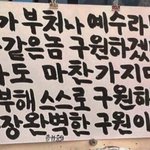 가 부처나 예수라
같은놈 구원하겠
도 마찬가지
부해 스스로 구원하
장 완벽한 구원이